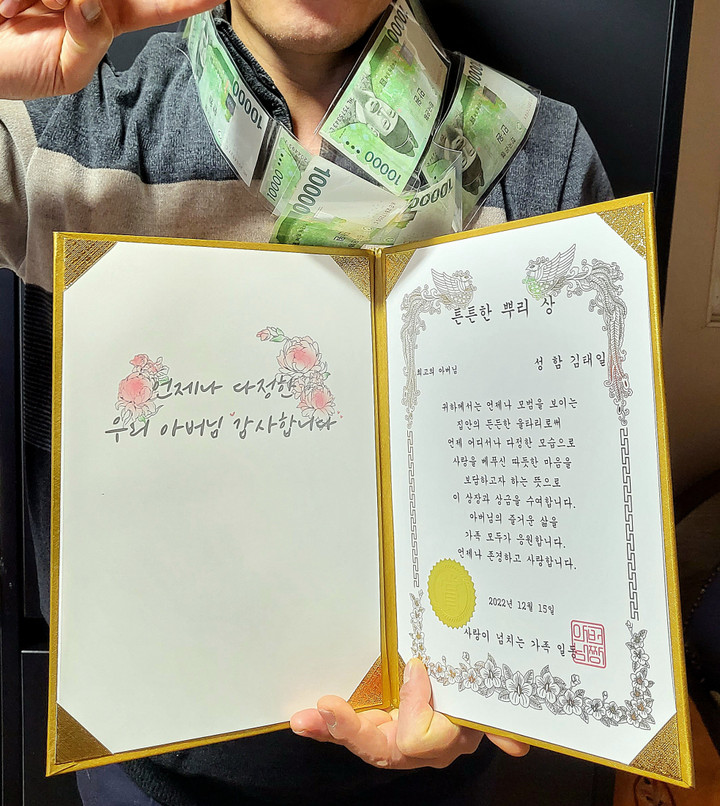 10000
10000
10000
10000
10000
언제나 다정한
우리 아버님 감사합니다
튼튼한 뿌리 상
최고의 아버님
성 함 김태일
귀하께서는 언제나 모범을 보이는
집안의 든든한 울타리로써
언제 어디서나 다정한 모습으로
사랑을 베푸신 따뜻한 마음을
보답하고자 하는 뜻으로
이 상장과 상금을 수여합니다.
아버님의 즐거운 삶을
가족 모두가 응원합니다.
언제나 존경하고 사랑합니다.
2022년 12월 15일
사랑이 넘치는 가족 일동
아버님짱